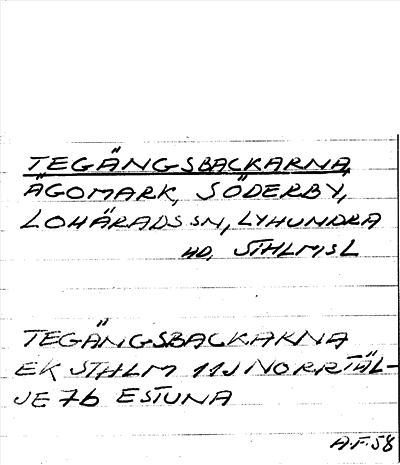 TEGÄNGSBACKARNA,
ÄGOMARK, SÖDERBY,
LOHÄRADS SN, LYHUNDRA
HD, STHLMS L
TEGÄNGSBACKARNA
EK STHLM 11J NORRTÄL-
JE 7b ESTUNA
A.F. 58